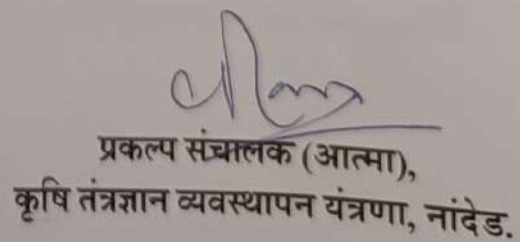 प्रकल्प संचालक (आत्मा),
कृषि तंत्रज्ञान व्यवस्थापन यंत्रणा, नांदेड.